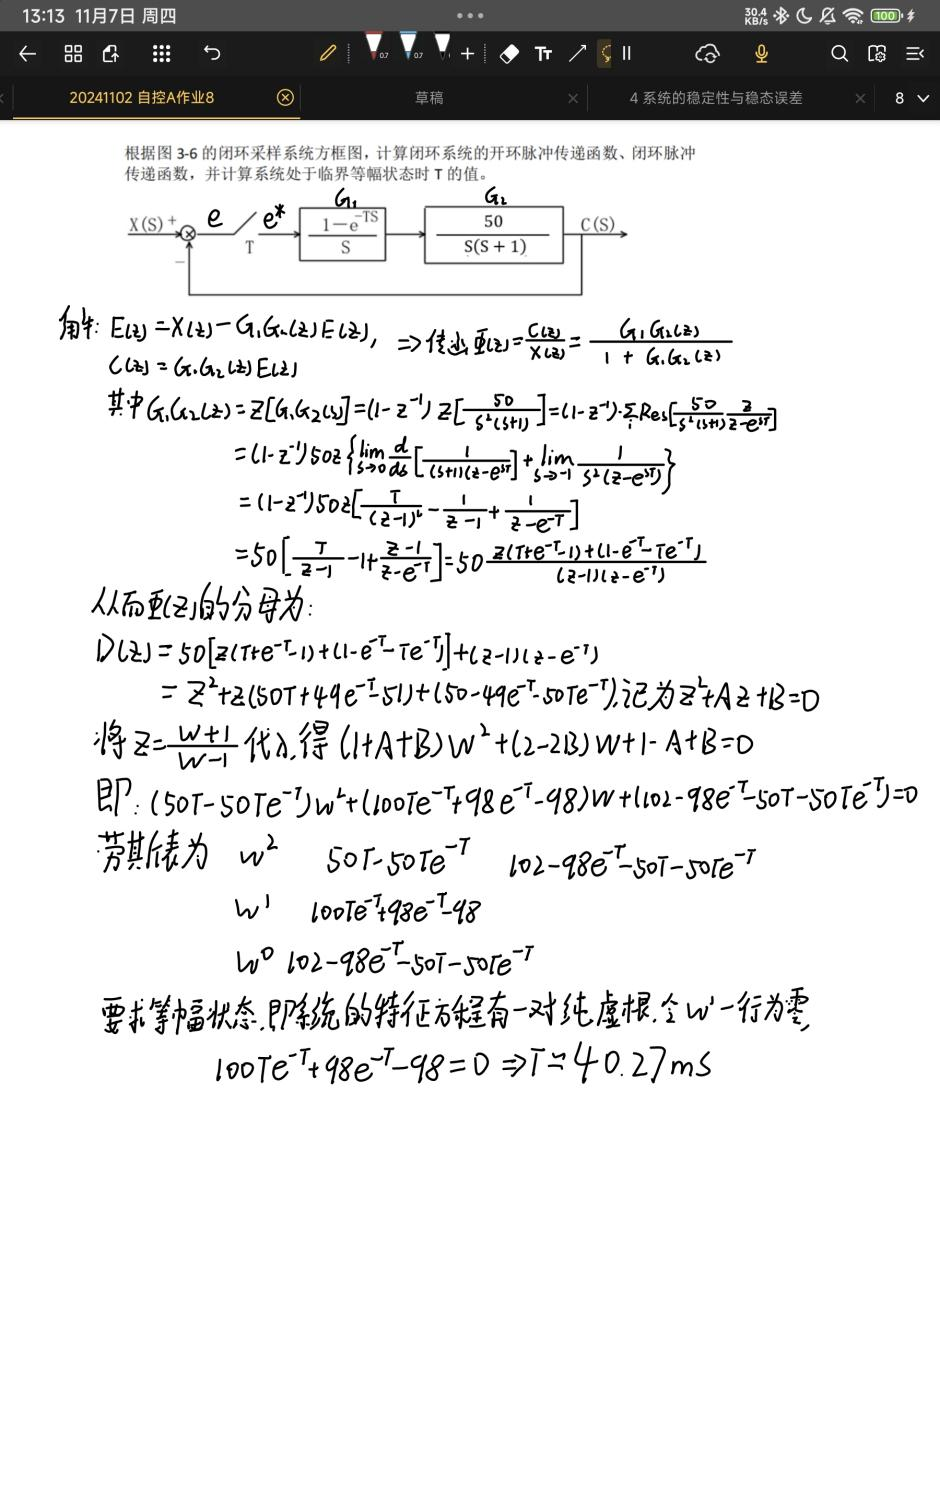 13:13 11月7日 周四 30.4 KB/s 100
0.7 0.7 Tт
20241102 自控A作业8 草稿 4 系统的稳定性与稳态误差 8
根据图 3-6 的闭环采样系统方框图，计算闭环系统的开环脉冲传递函数、闭环脉冲
传递函数，并计算系统处于临界等幅状态时 T 的值。
G₁ G₂
X(S) + e e* T (1−e^{-TS})/S 50/(S(S + 1)) C(S)
−
解: E(z)=X(z)−G₁G₂(z)E(z), ⇒传递Φ(z)=C(z)/X(z)=G₁G₂(z)/(1+G₁G₂(z))
C(z)=G₁G₂(z)E(z)
其中G₁G₂(z)=Z[G₁G₂(s)]=(1−z⁻¹)Z[50/(s²(s+1))]=(1−z⁻¹)·∑ᵢRes[50/(s²(s+1)) z/(z−e^{sT})]
=(1−z⁻¹)50z{lim_{s→0} d/ds[1/((s+1)(z−e^{sT}))]+lim_{s→−1} 1/(s²(z−e^{sT}))}
=(1−z⁻¹)50z[T/(z−1)²−1/(z−1)+1/(z−e^{-T})]
=50[T/(z−1)−1+(z−1)/(z−e^{-T})]=50 (z(T+e^{-T}−1)+(1−e^{-T}−Te^{-T}))/((z−1)(z−e^{-T}))
从而Φ(z)的分母为:
D(z)=50[z(T+e^{-T}−1)+(1−e^{-T}−Te^{-T})]+(z−1)(z−e^{-T})
=z²+z(50T+49e^{-T}−51)+(50−49e^{-T}−50Te^{-T}),记为z²+Az+B=0
将z=(w+1)/(w−1)代入,得(1+A+B)w²+(2−2B)w+1−A+B=0
即:(50T−50Te^{-T})w²+(100Te^{-T}+98e^{-T}−98)w+(102−98e^{-T}−50T−50Te^{-T})=0
劳斯表为 w² 50T−50Te^{-T} 102−98e^{-T}−50T−50Te^{-T}
w¹ 100Te^{-T}+98e^{-T}−98
w⁰ 102−98e^{-T}−50T−50Te^{-T}
要求等幅状态,即系统的特征方程有一对纯虚根,令w¹一行为零,
100Te^{-T}+98e^{-T}−98=0⇒T≈40.27ms